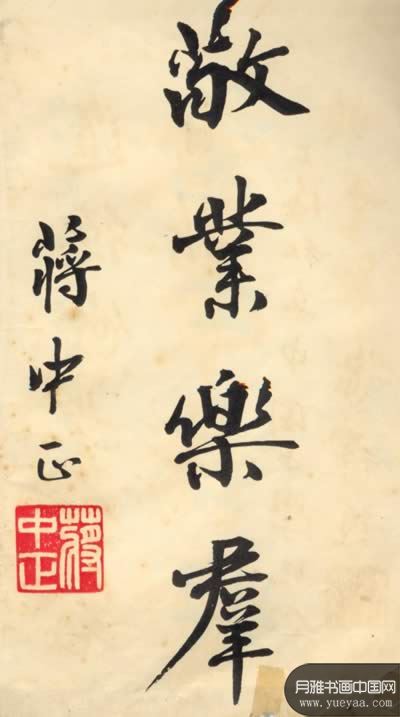 敬業樂羣
蔣中正
蔣中正
月雅书画中国网
www.yueyaa.com